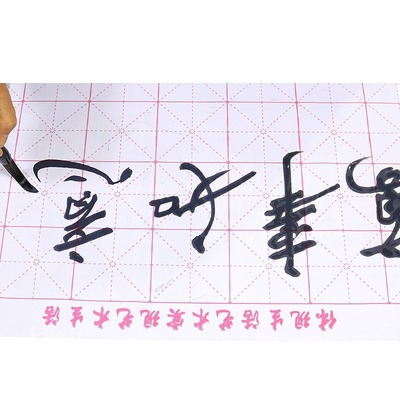 萬事如意
体现生活艺术实现艺术生活